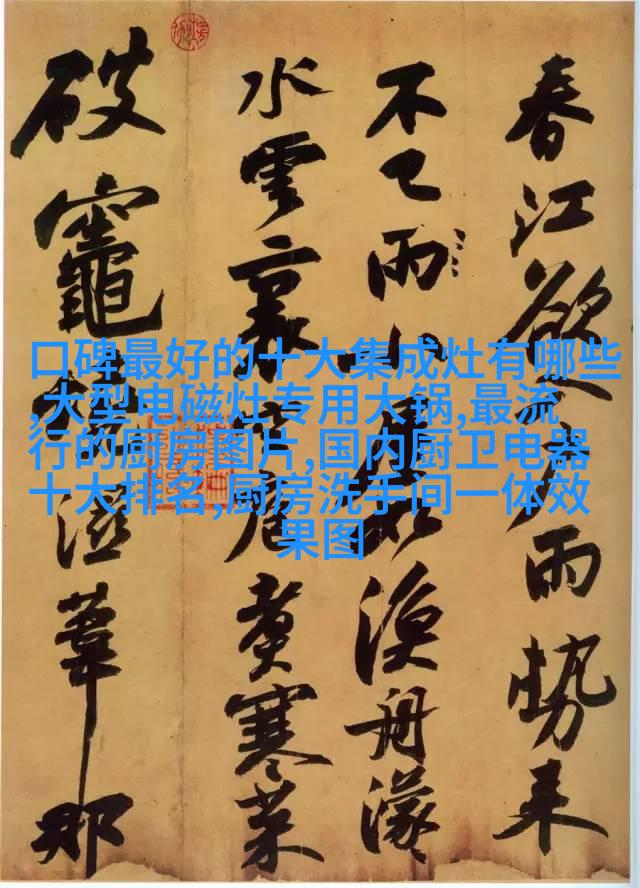 春江欲入戶雨勢来
不已雨小屋如漁舟濛
水雲裏空庖煮寒菜
破竈燒濕葦那
口碑最好的十大集成灶有哪些
,大型电磁灶专用大锅,最流
行的厨房图片,国内厨卫电器
十大排名,厨房洗手间一体效
果图